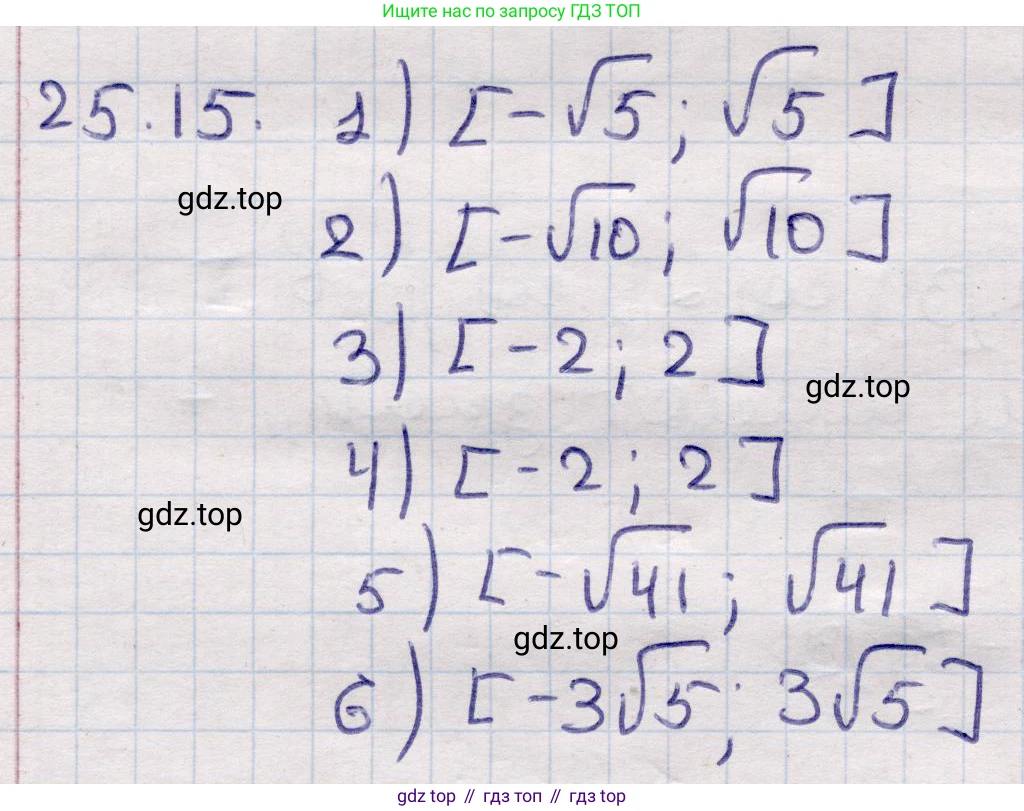 Ищите нас по запросу ГДЗ ТОП
25.15. 1) [-√5; √5]
gdz.top
2) [-√10; √10]
3) [-2; 2]
gdz.top
4) [-2; 2]
gdz.top
5) [-√41; √41]
gdz.top
6) [-3√5; 3√5]
gdz top // гдз топ // гdз top